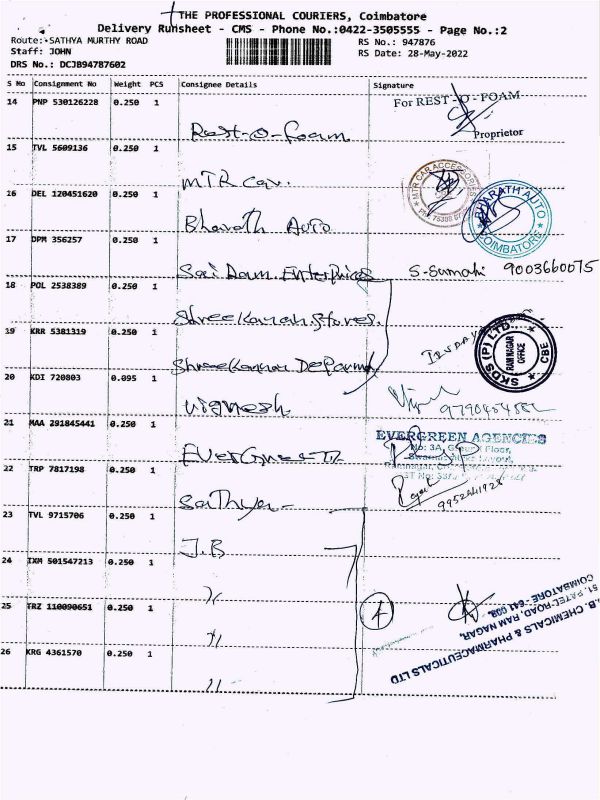 THE PROFESSIONAL COURIERS, Coimbatore
Delivery Runsheet - CMS - Phone No.:0422-3505555 - Page No.:2
Route: SATHYA MURTHY ROAD
Staff: JOHN
DRS No.: DCJB94787602
RS No.: 947876
RS Date: 28-May-2022
S No Consignment No Weight PCS Consignee Details Signature
14 PNP 530126228 0.250 1
Rest-o-foam
For REST-O-FOAM
Proprietor
15 TVL 5609136 0.250 1
MTR Car.
MTR CAR ACCESSORIES
16 DEL 120451620 0.250 1
Bharath Auto
BHARATH AUTO
COIMBATORE
17 DPM 356257 0.250 1
Sai Dam Enterprices S-Sumathi 9003660075
18 POL 2538389 0.250 1
Shree Kannan Stores.
19 KRR 5381319 0.250 1
Shree Kannan
SKDS (P) LTD.
RAM NAGAR
OFFICE
CBE
20 KDI 720803 0.095 1
Vignesh
21 MAA 291845441 0.250 1
EverGreen
EVERGREEN AGENCIES
No: 3A, Ground Floor,
22 TRP 7817198 0.250 1
Sathya
9952441928
23 TVL 9715706 0.250 1
J.B
24 IXM 501547213 0.250 1
〃
25 TRZ 110090651 0.250 1
〃
4
26 KRG 4361570 0.250 1
〃
J.B. CHEMICALS & PHARMACEUTICALS LTD
51, PATEL ROAD, RAM NAGAR,
COIMBATORE - 641 009.